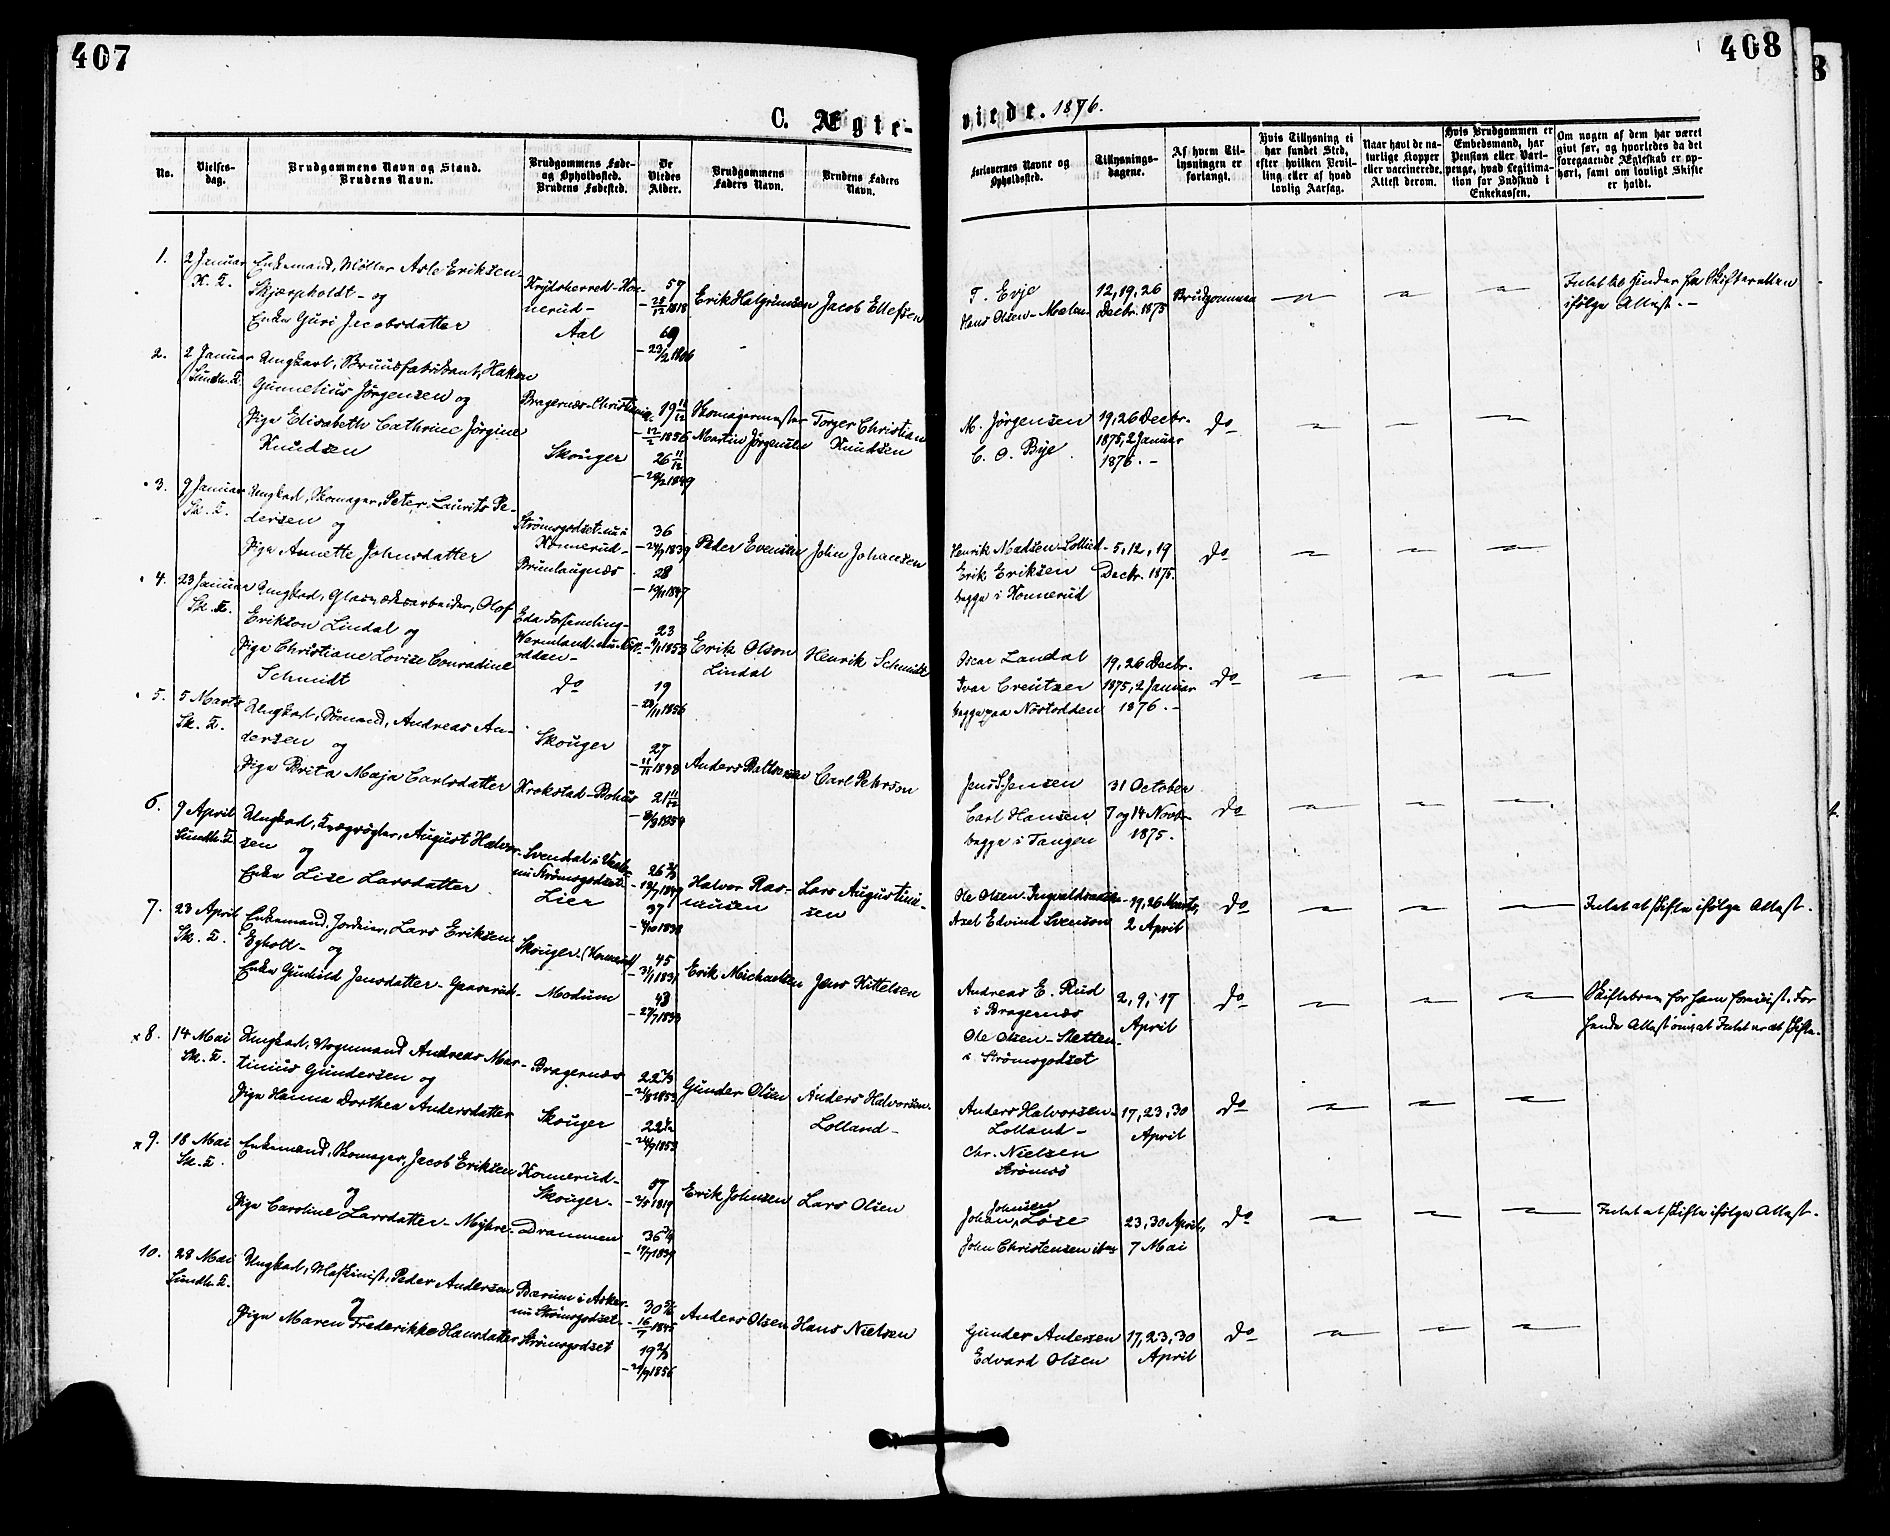 407
408
C. Ægte-
viede. 1876.
No.
Vielses-
dag.
Brudgommens Navn og Stand.
Brudens Navn.
Brudgommens Føde-
og Opholdssted.
Brudens Fødested.
De
Viedes
Alder.
Brudgommens
Faders Navn.
Brudens Faders
Navn.
Forlovernes Navne og
Opholdssted.
Tillysnings-
dagene.
Af hvem Til-
lysningen er
forlangt.
Hvis Tillysning ei
har fundet Sted,
efter hvilken Bevil-
ling eller af hvad
lovlig Aarsag.
Naar havt de na-
turlige Kopper
eller vaccinerede.
Attest derom.
Hvis Brudgommen er
Embedsmand, har
Pension eller Vart-
penge, hvad Legitima-
tion for Indskud i
Enkekassen.
Om nogen af dem har været
givt før, og hvorledes da det
foregaaende Ægteskab er op-
hørt, samt om lovligt Skifte
er holdt.
1.
2 Januar
K. K.
Enkemand, Møller Asle Eriksen
Skjærpholdt - og
Enke Guri Jacobsdatter
Krydsherred - Kon-
nerud -
Aal
57
28/12 1818
69
23/2 1806
Erik Halgrimsen
Jacob Ellefsen
T. Evje
Hans Olsen - Moelen
12, 19, 26
Decbr. 1875
Brudgommen
Intet at hinder fra Skifteretten
ifølge Attest. -
2.
2 Januar
Sundh. K.
Ungkarl, Bruusfabrikant, Hakon
Gunnelius Jørgensen og
Pige Elisabeth Cathrine Jørgine
Knudsen
Bragernæs - Christiania
Skouger
19 11/12
12/2 1856
26 11/12
20/2 1849
Skomagermester
Martin Jørgensen
Torger Christian
Knudsen
M. Jørgensen
C. O. Bye
19, 26 Decbr.
1875, 2 Januar
1876. -
Do
3.
9 Januar
Sk. K.
Ungkarl, Skomager, Peter Laurits Pe-
dersen og
Pige Annette Johnsdatter
Strømsgodset - nu i
Konnerud -
Brunlaugnæs
36
24/9 1839
28
19/11 1847
Peder Evensen
John Johansen
Henrik Madsen - Lolland -
Erik Eriksen
begge i Konnerud
5, 12, 19
Decbr. 1875.
Do
4.
23 Januar
Sk. K.
Ungkarl, Glasværksarbeider, Olof
Erikson Lindal og
Pige Christiane Lovise Conradine
Schmidt
Eda Forsamling -
Wermland - nu Nøst-
odden -
Do
23
1853
19
28/11 1856
Erik Olson
Lindal
Henrik Schmidt
Oscar Landal
Ivar Creutzer
begge paa Nøstodden
19, 26 Decbr.
1875, 2 Januar
1876. -
Do
5.
5 Marts
Sk. K.
Ungkarl, Sømand, Andreas An-
dersen og
Pige Brita Maja Carlsdatter
Skouger
Krokstad - Bohus
27
11/11 1848
21 11/12
1854
Anders Baltsersen
Carl Pehrson
Jens S. Jensen
Carl Hansen
begge i Tangen
31 October
7 og 14 Novbr.
1875.
Do
6.
9 April
Sundh. K.
Ungkarl, Kvægrøgter, August Halvor-
sen og
Enke Lise Larsdatter
nu Strømsgodset -
Lier
26 2/3
13/7 1849
37
1838
Halvor Ras-
mussen
Lars Augustine-
sen
Ole Olsen
Axel Edvind Svenson
19, 26 Marts,
2 April
Do
Intet at skifte ifølge Attest.
7.
23 April
Sk. K.
Enkemand, Jordeier, Lars Eriksen
Egholt - og
Enke Gunhild Jensdatter - Gaaserud -
Skouger - (Konnerud)
Modum
45
31/1 1831
43
27/7 1833
Erik Michaelsen
Jens Kittelsen
Andreas E. Rud
i Bragernæs
Ole Olsen - Sletten -
i Strømsgodset
2, 9, 17
April
Do
Skiftebrev for ham forevist. For
hende Attest om, at Intet er at skifte.
8.
14 Mai
Sk. K.
Ungkarl, Vognmand Andreas Mar-
tinius Gundersen og
Pige Hanna Dorthea Andersdatter
Bragernæs
Skouger
22 2/3
1853
22 1/2
24/9 1853
Gunder Olsen
Anders Halvorsen -
Lolland -
Anders Halvorsen -
Lolland -
Chr. Nielsen
Strømsø
17, 23, 30
April
Do
9.
18 Mai
Sk. K.
Enkemand, Skomager, Jacob Eriksen
og
Pige Caroline Larsdatter - Myhre -
Konnerud -
Skouger -
Drammen
57
1819
36 3/4
1839
Erik Johnsen
Lars Olsen
Johnsen
Johan Løse
John Christensen ibid
23, 30 April,
7 Mai
Do
Intet at skifte ifølge Attest.
10.
28 Mai
Sundh. K.
Ungkarl, Maskinist, Peder Andersen
og
Pige Maren Frederikke Hansdatter
Bærum i Asker -
nu Strømsgodset -
Strømsgodset
30 5/6
16/7 1845
19 2/3
1856
Anders Olsen
Hans Nielsen
Gunder Andersen
Edvard Olsen
17, 23, 30
April
Do